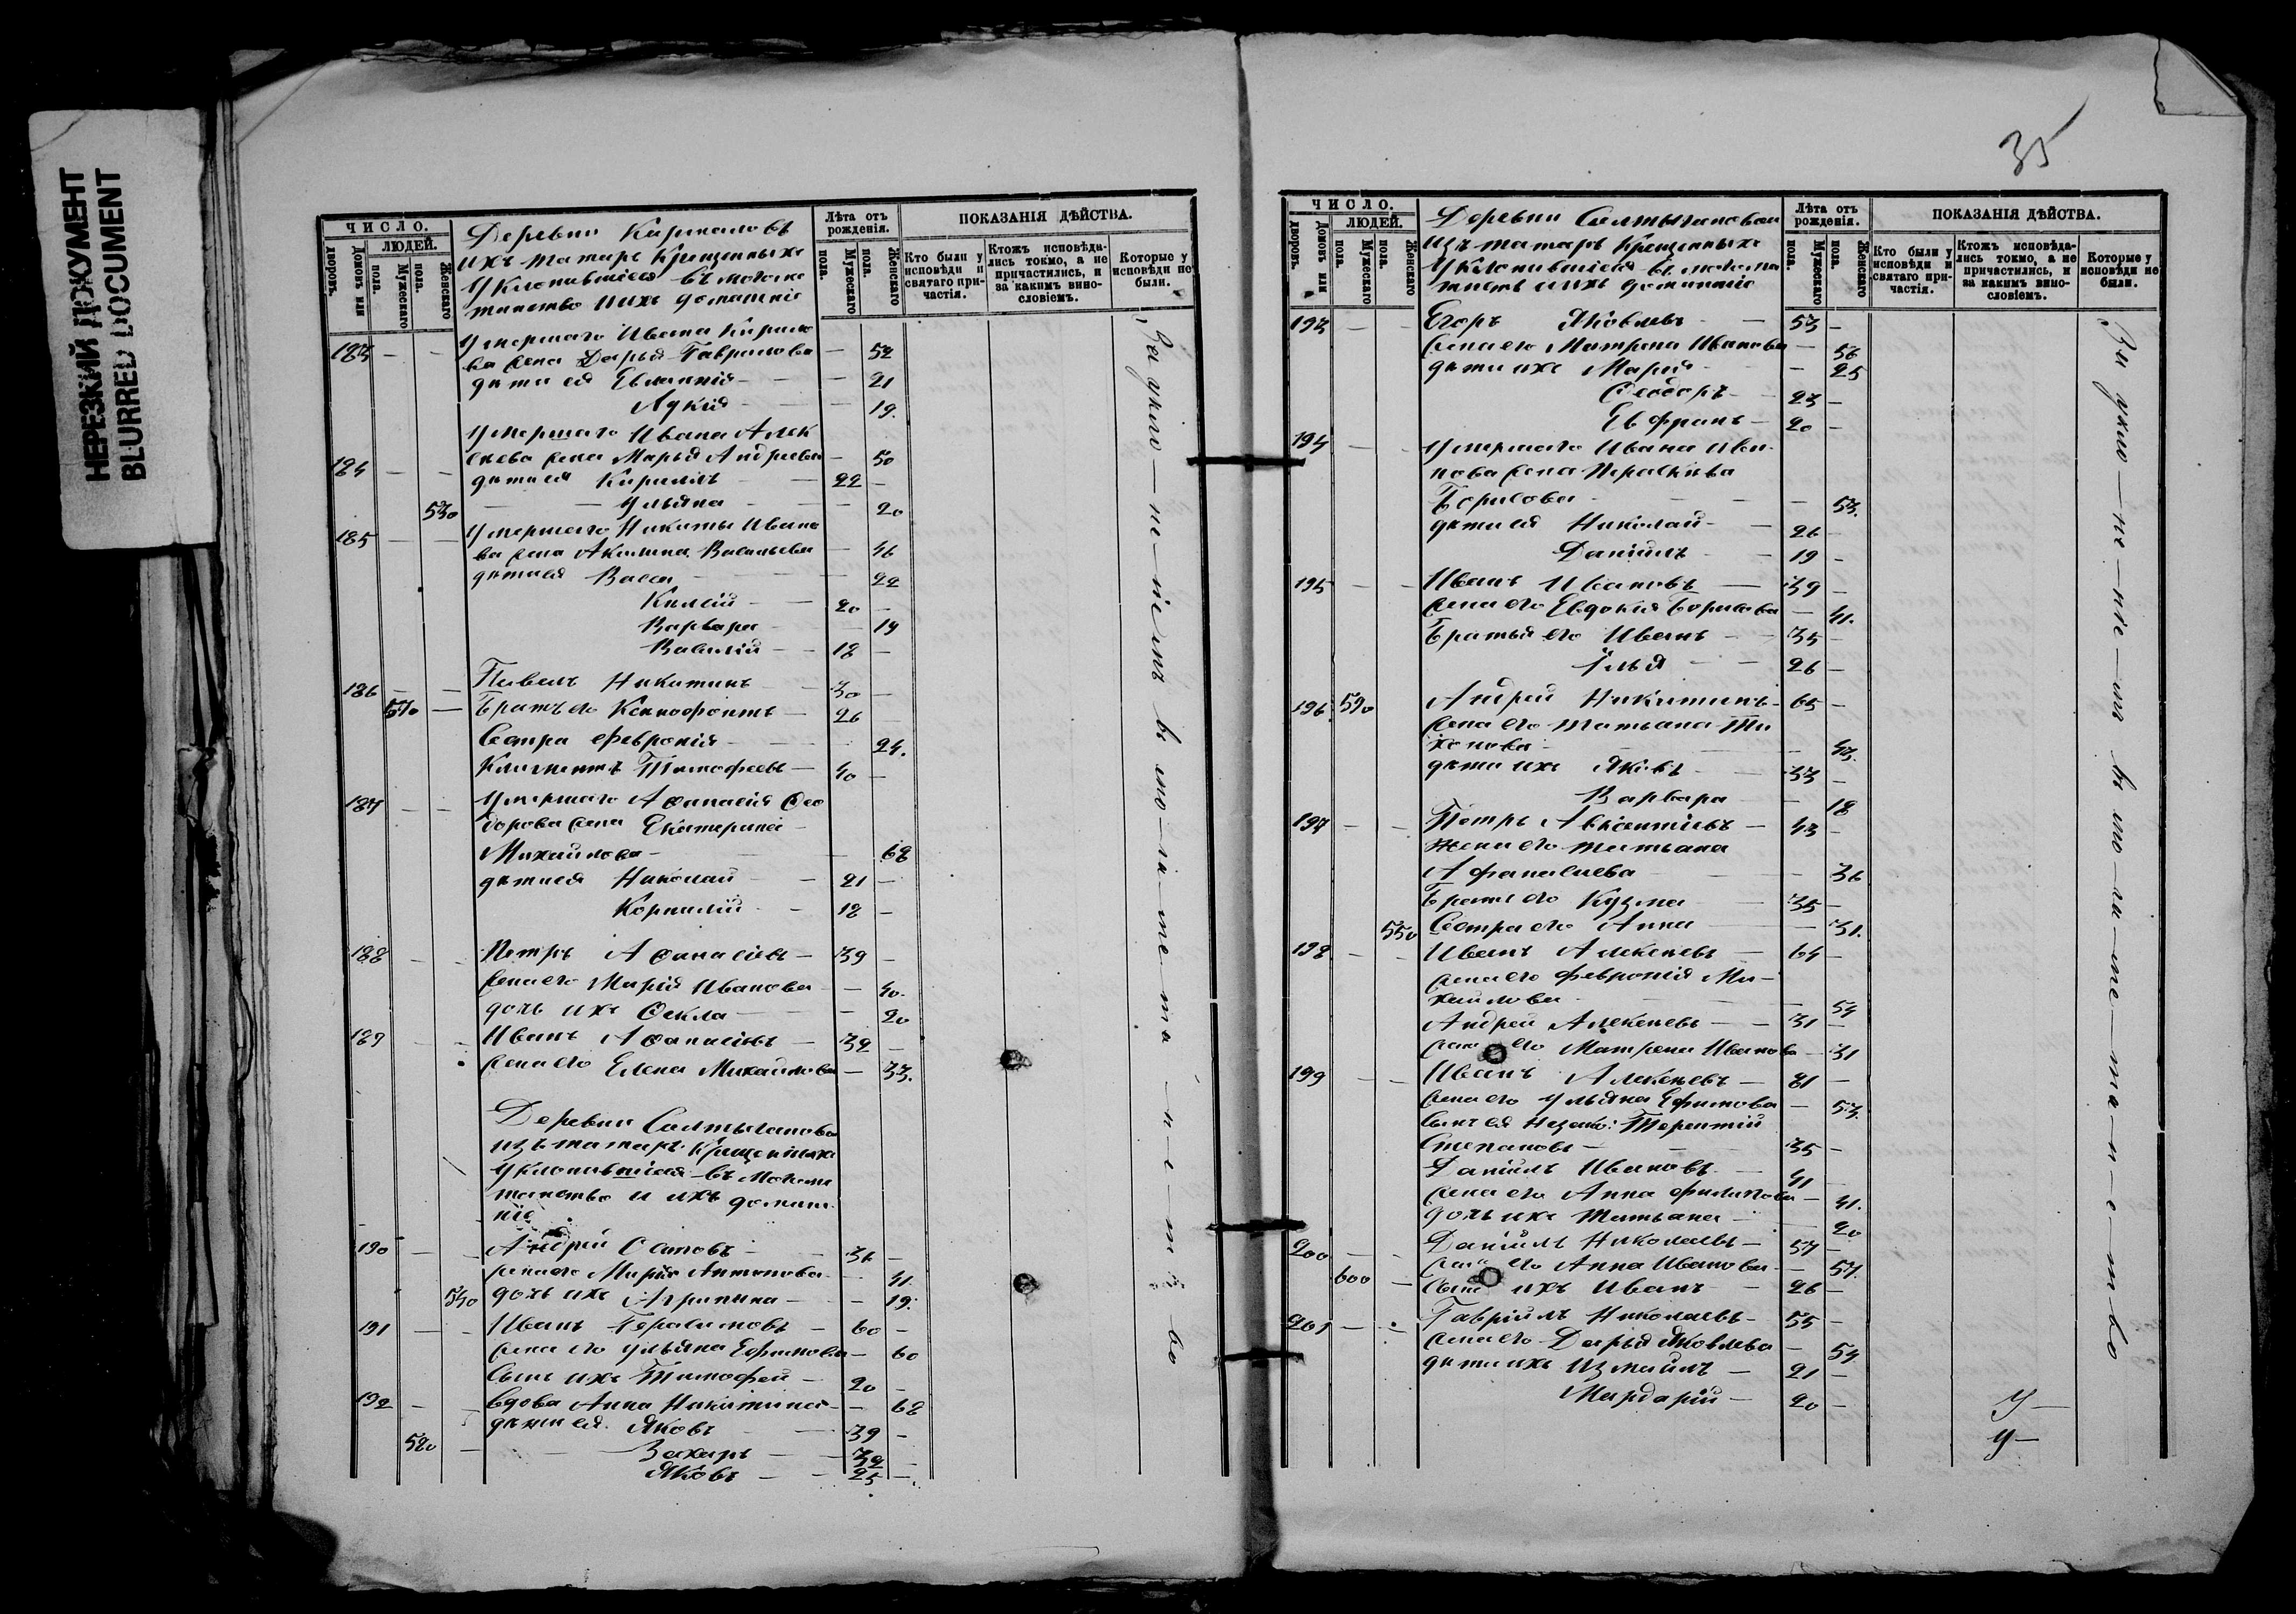 НЕРЕЗКИЙ ДОКУМЕНТ
BLURRED DOCUMENT
ЧИСЛО.
ЛЮДЕЙ.
Домовъ или дворовъ.
Мужескаго пола.
Женскаго пола.
Деревни
изъ татаръ Крещенныхъ
уклонившіеся въ магоме
танство и ихъ домашніе
Лѣта отъ рожденія.
Мужескаго пола.
Женскаго пола.
ПОКАЗАНІЯ ДѢЙСТВА.
Кто были у исповѣди и святаго причастія.
Ктожъ исповѣдались токмо, а не причастились, и за какимъ винословіемъ.
Которые у исповѣди не были.
умершаго Ивана Кирило
183 — — ва жена Дарья Гаврилова — 52
дѣти ея Евланпія — — 21
Лукія — — 19.
умершаго Ивана Алек
184 — — сѣева жена Марья Андреева — 50
дѣти ея Кирилъ — 22 —
530 — Ульяна — — 20
185 — — умершаго Никиты Ивано
ва жена Акилина Васильева — 46
дѣти ея Васса — — 22
20 —
Варвара — — 19
Василій — — 18 —
186 — — Павелъ Никитинъ 30 —
570 — Братъ его Ксенофонтъ — 26
Сестра Февронія — — 24.
Климентъ Тимофеевъ — 40 —
187 — — умершаго Афанасія Фео
дорова жена Екатерина
Михайлова — — 68
дѣти ея Николай — — 21 —
Корнилій — 18 —
188 — — Петръ Афанасіевъ — 39 —
жена его Марія Иванова — 40.
дочь ихъ Фекла — — 20
189 — — Иванъ Афанасіевъ — 32 —
жена его Елена Михайлова — 33.
Деревни Салтыганова
изъ татаръ Крещенныхъ
уклонившіеся въ Магоме
танство и ихъ домаш
ніе
190 — — Андрей Осиповъ — 36 —
жена его Марія Антонова — 41.
540 дочь ихъ Агрипина — — 19.
191 — — Иванъ Герасимовъ — 60 —
жена его Ульяна Ефимова — 60
Сынъ ихъ Тимофей — 20 —
192 — — вдова Анна Никитина — — 68
дѣти ея Яковъ — 39 —
580 — Захаръ — 32 —
Яковъ — — 25 —
За укло-не-ніемъ въ мо-га-ме-та-н-с-т-во
35
ЧИСЛО.
ЛЮДЕЙ.
Домовъ или дворовъ.
Мужескаго пола.
Женскаго пола.
Деревни Салтыгановой
изъ татаръ Крещенныхъ
уклонившіеся въ магоме
танств и ихъ домашніе
Лѣта отъ рожденія.
Мужескаго пола.
Женскаго пола.
ПОКАЗАНІЯ ДѢЙСТВА.
Кто были у исповѣди и святаго причастія.
Ктожъ исповѣдались токмо, а не причастились, и за какимъ винословіемъ.
Которые у исповѣди не были.
193 — — Егоръ Яковлевъ — 53 —
жена его Матрона Иванова — 56
дѣти ихъ Марія — 25
Феодоръ — 23 —
20 —
194 — умершаго Ивана Ива
нова жена Параскева
Борисова — — 53.
дѣти ея Николай — 26 —
Даніилъ — 19 —
195 — — Иванъ Ивановъ — 39 —
жена его Евдокія Борисова — 41.
Братья его Иванъ — 35 —
Илья — 26 —
196 590 Андрей Никитинъ — 65 —
жена его Татьана Ти
хонова — — 43.
дѣти ихъ Яковъ — 33 —
Варвара — 18
197 — — Петръ — 43 —
жена его Татьана
Афанасиева — 36
Братъ его Кузма 35 —
550 Сестра его Анна — 31.
198 — — Иванъ Алексеевъ — 64 —
жена его Февронія Ми-
хайлова — 54
Андрей Алексеевъ — 31 —
жена его Матрена Иванова — 31
199 — — Иванъ Алексеевъ — 81 —
жена его Ульяна Ефимова — 53.
Сынъ ея незако: Терентій
Степановъ — 35 —
Даніилъ Ивановъ — 41 —
жена его Анна Филипова — 41.
дочь ихъ Татьана — 20
200 — — Даніилъ Николаевъ — 57 —
жена его Анна Иванова — 57.
600 — Сынъ ихъ Иванъ — 26 —
201 — — Гавріилъ Николаевъ — 55 —
жена его Дарья Яковлева — 54
дѣти ихъ Измаилъ — 21 —
Мардарій — 20 —
За укло-не-ніе-мъ въ мо-га-ме-та-н-с-т-во
У—
У—